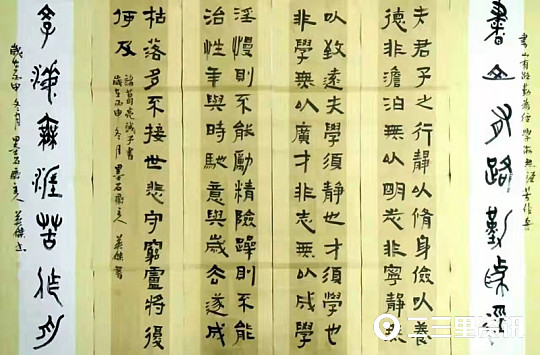 書山有路勤為徑學海無涯苦作舟
書山有路勤為徑
夫君子之行靜以脩身儉以養
德非澹泊無以明志非寧靜無
以致遠夫學須靜也才須學也
非學無以廣才非志無以成學
淫慢則不能勵精險躁則不能
治性年與時馳意與歲去遂成
枯落多不接世悲守窮廬將復
何及
諸葛亮誡子書
歲在丙申冬月墨石齋主人英傑書
學海無涯苦作舟
歲在丙申冬月墨石齋主人英傑書
三里资讯